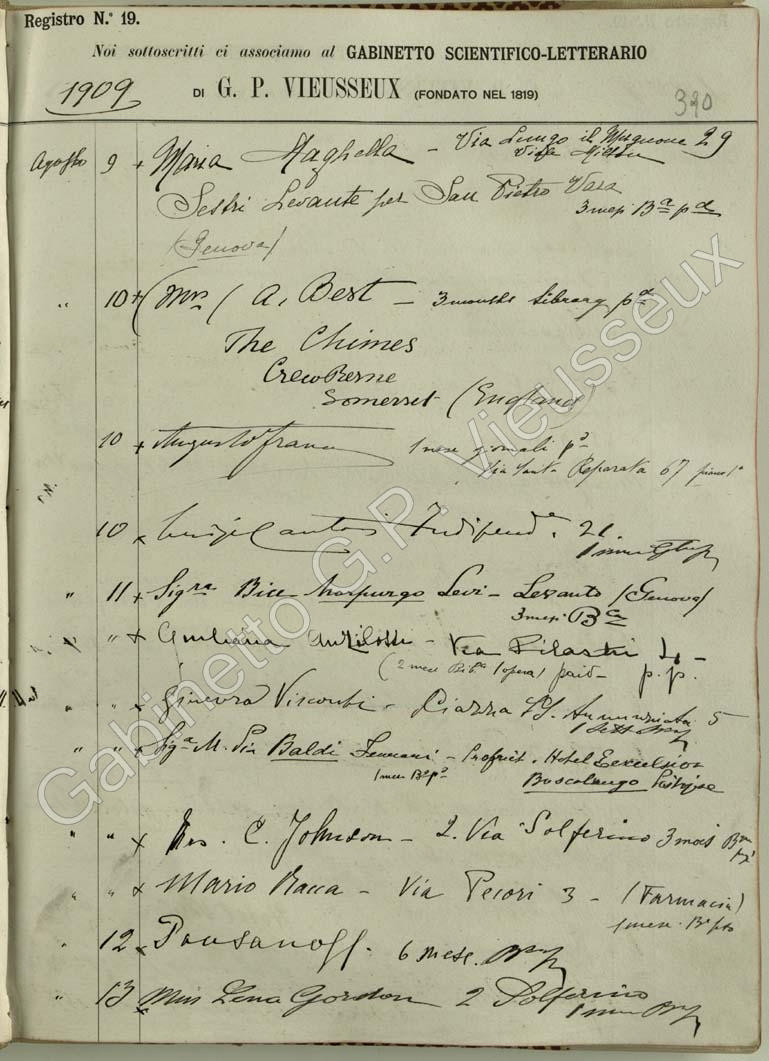 Registro N.° 19.
Noi sottoscritti ci associamo al GABINETTO SCIENTIFICO-LETTERARIO
1909
DI G. P. VIEUSSEUX (FONDATO NEL 1819)
390
Agosto 9 + Maria - Via Lungo il Mugnone 29
Sestri Levante per San Pietro Vara
3 mesi Bª pd
(Genova)
" 10 + (Mrs (A. Best - 3 months library pd
The Chimes
Crewkerne
Somerset (England)
10 + Augusto 1 mese giornali
Via Santa Reparata 67 piano 1°
10 x Luigi 21.
1 mese
" 11 x Sigra Bice Morpurgo Levi - Levanto (Genova)
3 mesi Bca
" x Giuliana Anzilotti - Via Pilastri 4 -
(2 mese 1 opera) paid - p.p.
" " x Ginevra Visconti - Piazza SS. Annunziata 5
" " x Siga M. Pia Baldi - Propriet. Hotel Excelsior
1 mese
Boscolungo Pistoiese
" " x C. Johnson - 2. Via Solferino 3 mois
" " x Mario - Via Pecori 3 - (Farmacia)
1 mese
" 12 x 6 mese.
" 13 x Miss Lena Gordon 2 Solferino
1 mese
Gabinetto G.P. Vieusseux